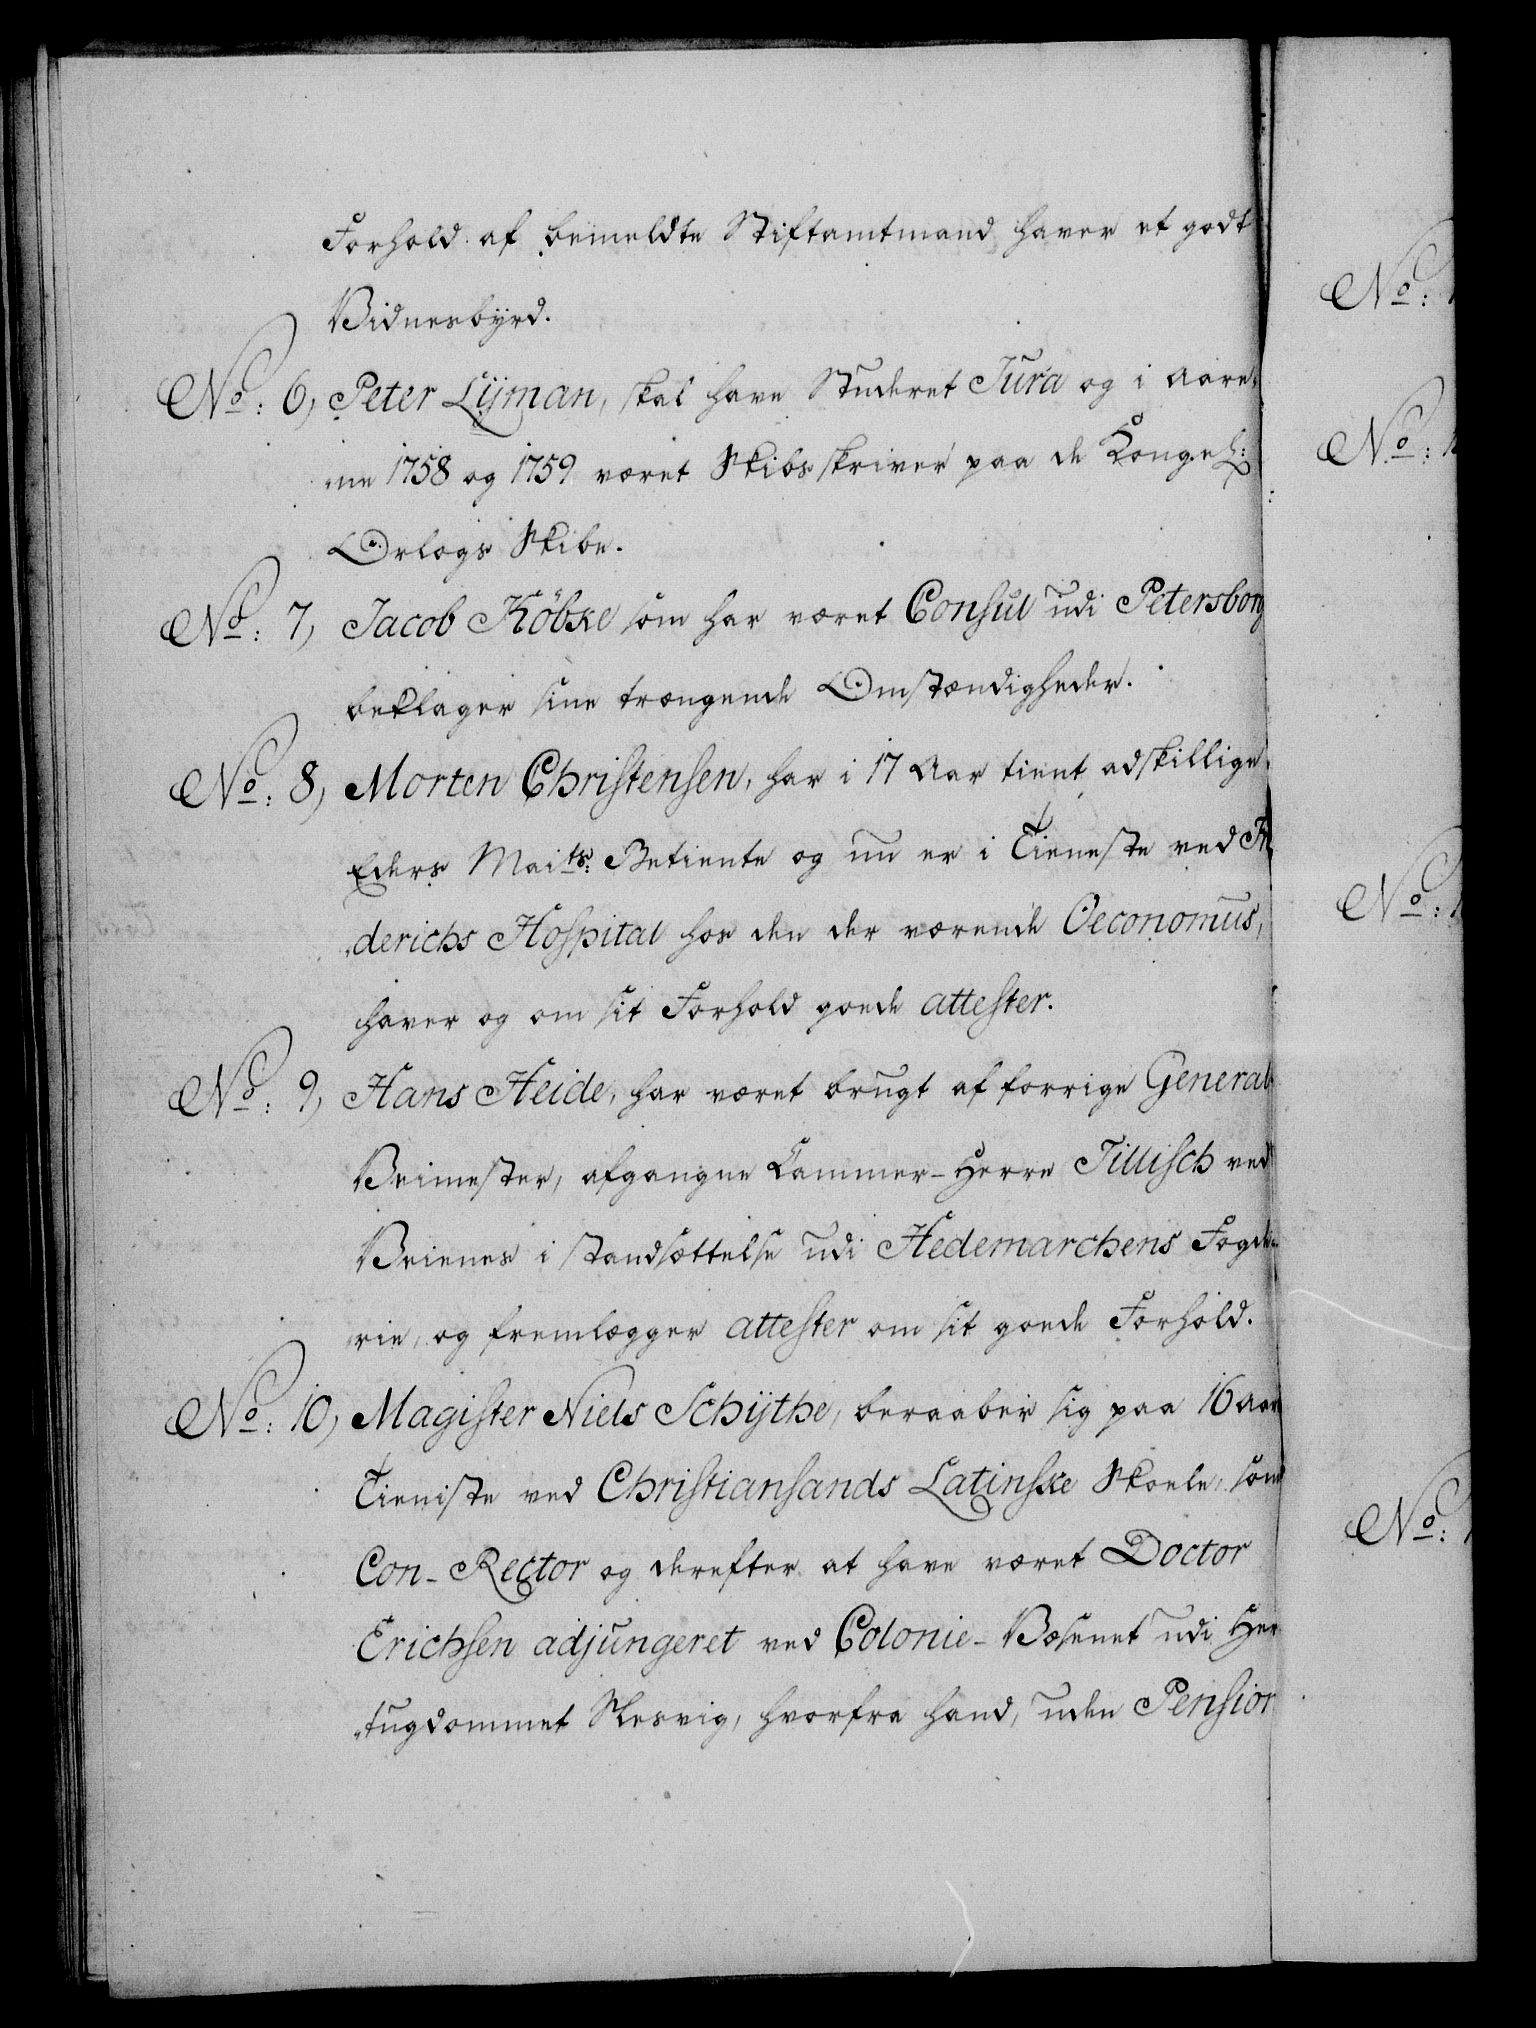 Forhold af bemeldte Stiftamtmand haver et godt
Vidnesbyrd.
No: 6, Peter Lijman, skal have Studeret Jura og i Aare-
ne 1758 og 1759 været Skibsskriver paa de Kongel:
Orlogs Skibe.
No: 7, Jacob Köbke som har været Consul udi Petersborg
beklager sine trængende Omstændigheder.
No: 8, Morten Christensen, har i 17 Aar tient adskillige
Eders Maits: Betiente og nu er i Tieneste ved Fri
derichs Hospital hos den der værende Oeconomus,
haver og om sit Forhold goede attester.
No: 9, Hans Heide, har været brugt af forrige General
Veimester, afgangne Cammer-Herre Tillisch ved
Veienes istandsættelse udi Hedemarchens Fogde-
rie, og fremlægger attester om sit goede Forhold.
No: 10, Magister Niels Schijthe, beraaber sig paa 16 Aars
Tieniste ved Christiansands Latinske Skoele, som
Con-Rector og derefter at have været Doctor
Erichsen adjungeret ved Colonie-Væsenet udi Her
tugdommet Slesvig, hvorfra hand, uden Pension
No: 1
No: 1
No: 1
No: 1